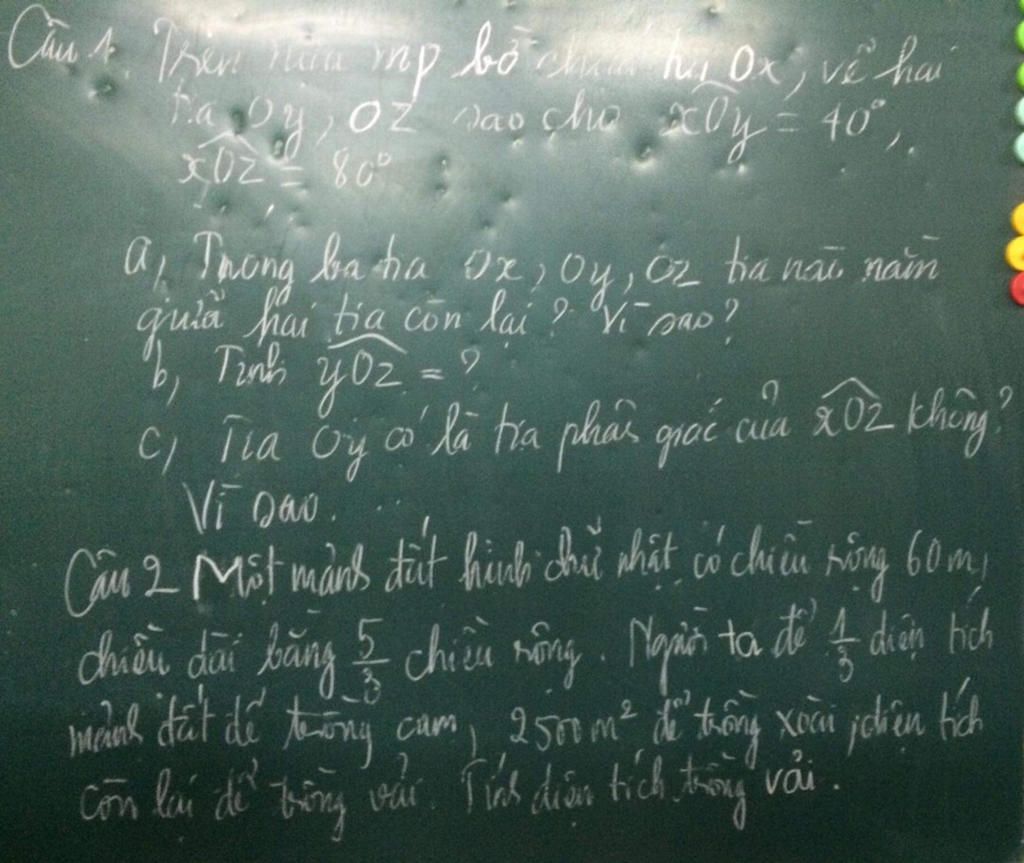 Câu 1. Trên nửa mp bờ chứa tia Ox, vẽ hai
tia Oy, Oz sao cho xOy = 40°,
xOz = 80°
a, Trong ba tia Ox, Oy, Oz tia nào nằm
giữa hai tia còn lại? Vì sao?
b, Tính yOz = ?
c, Tia Oy có là tia phân giác của xOz không?
Vì sao.
Câu 2 Một mảnh đất hình chữ nhật có chiều rộng 60m,
chiều dài bằng 5/3 chiều rộng. Người ta để 1/3 diện tích
mảnh đất để trồng cam, 2500m² để trồng xoài, diện tích
còn lại để trồng vải. Tính diện tích trồng vải.